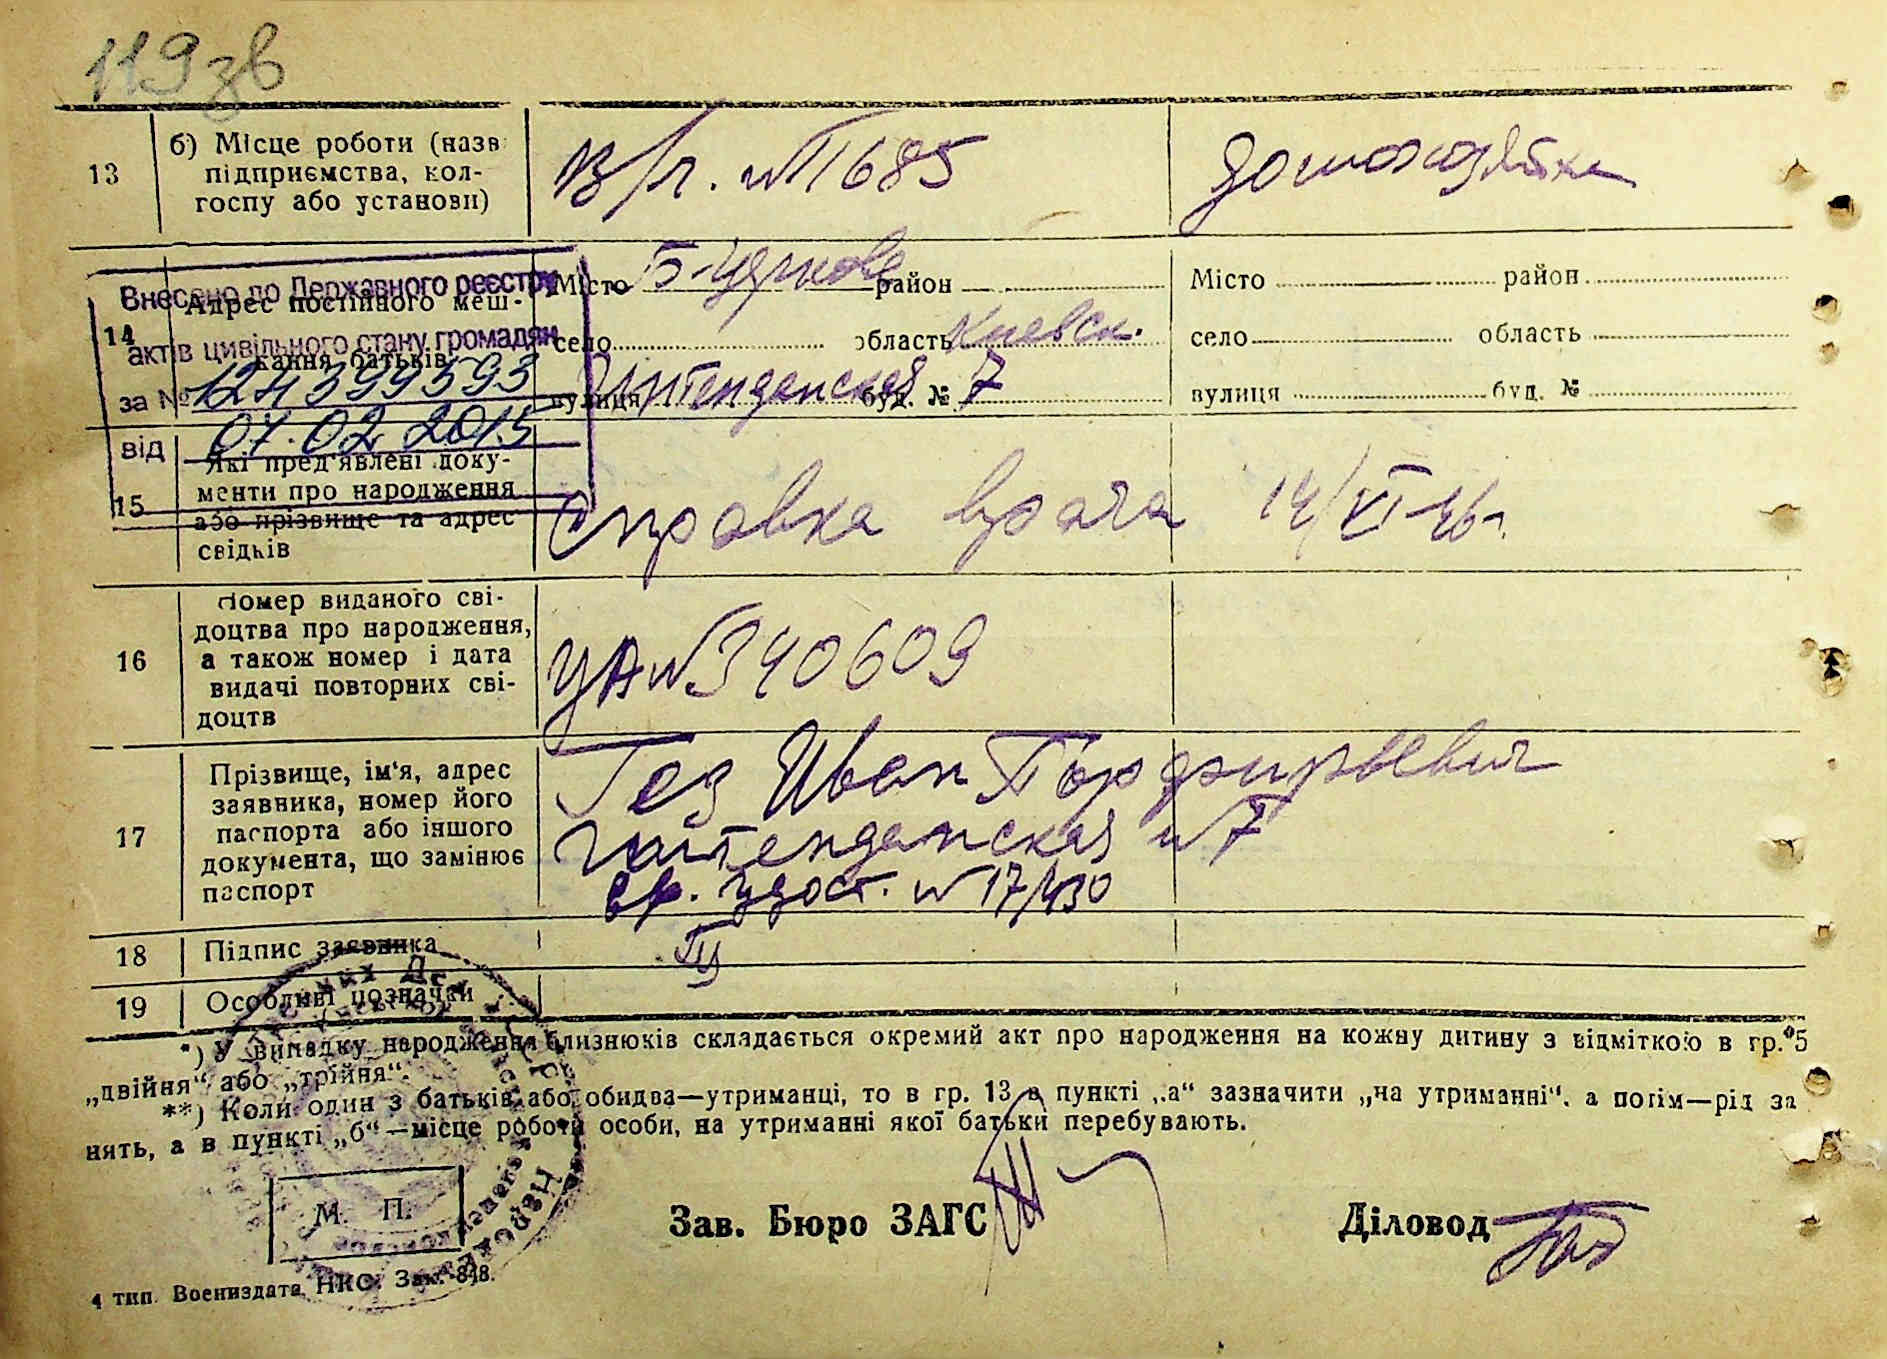 119 зв
13
б) Місце роботи (назв
підприємства, кол-
госпу або установи)
В/ч. №1685
домохозяйка
Внесено до Державного реєстру
актів цивільного стану громадян
за № 12439
від 07.02 2015
14
Адрес постійного меш-
кання батьків
Місто Б-Церковь район
село область Киевск.
вулиця Интенданская буд. № 7
Місто район
село область
вулиця буд. №
15
Які пред'явлені доку-
менти про народження
або прізвище та адрес
свідків
Справка врача 14/VI-46г.
16
Номер виданого сві-
доцтва про народження,
а також номер і дата
видачі повторних сві-
доцтв
УА №340609
17
Прізвище, ім'я, адрес
заявника, номер його
паспорта або іншого
документа, що замінює
паспорт
Гез Иван Порфирьевич
Интенданская №7
вр. удост. № 17/430
18
Підпис заявника
19
Особливі позначки
*) У випадку народження близнюків складається окремий акт про народження на кожну дитину з відміткою в гр. 5
„двійня“ або „трійня“.
**) Коли один з батьків або обидва—утриманці, то в гр. 13 в пункті „а“ зазначити „на утриманні“, а потім—рід за
нять, а в пункті „б“—місце роботи особи, на утриманні якої батьки перебувають.
М. П.
Зав. Бюро ЗАГС
Діловод
4 тип. Воениздата НКО. Зак. 848.